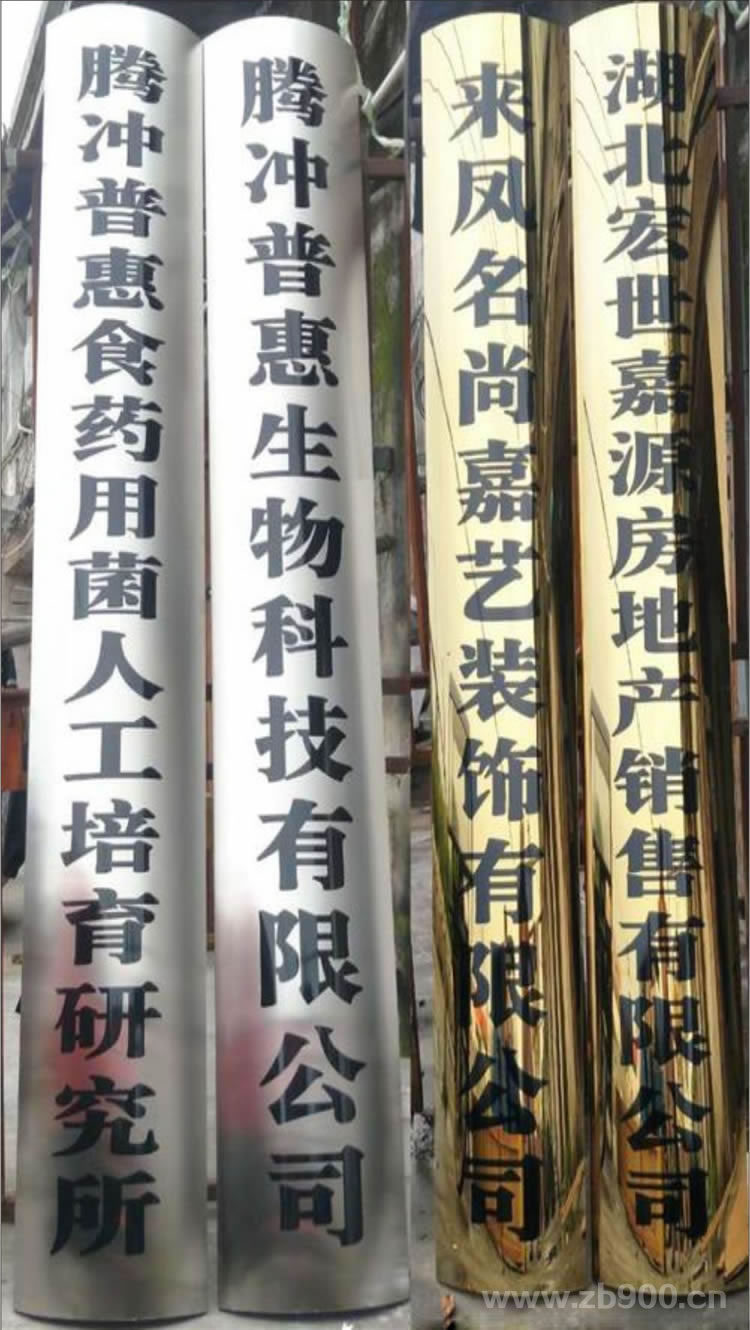 腾冲普惠食药用菌人工培育研究所
腾冲普惠生物科技有限公司
来凤名尚嘉艺装饰有限公司
湖北宏世嘉源房地产销售有限公司
www.zb900.cn